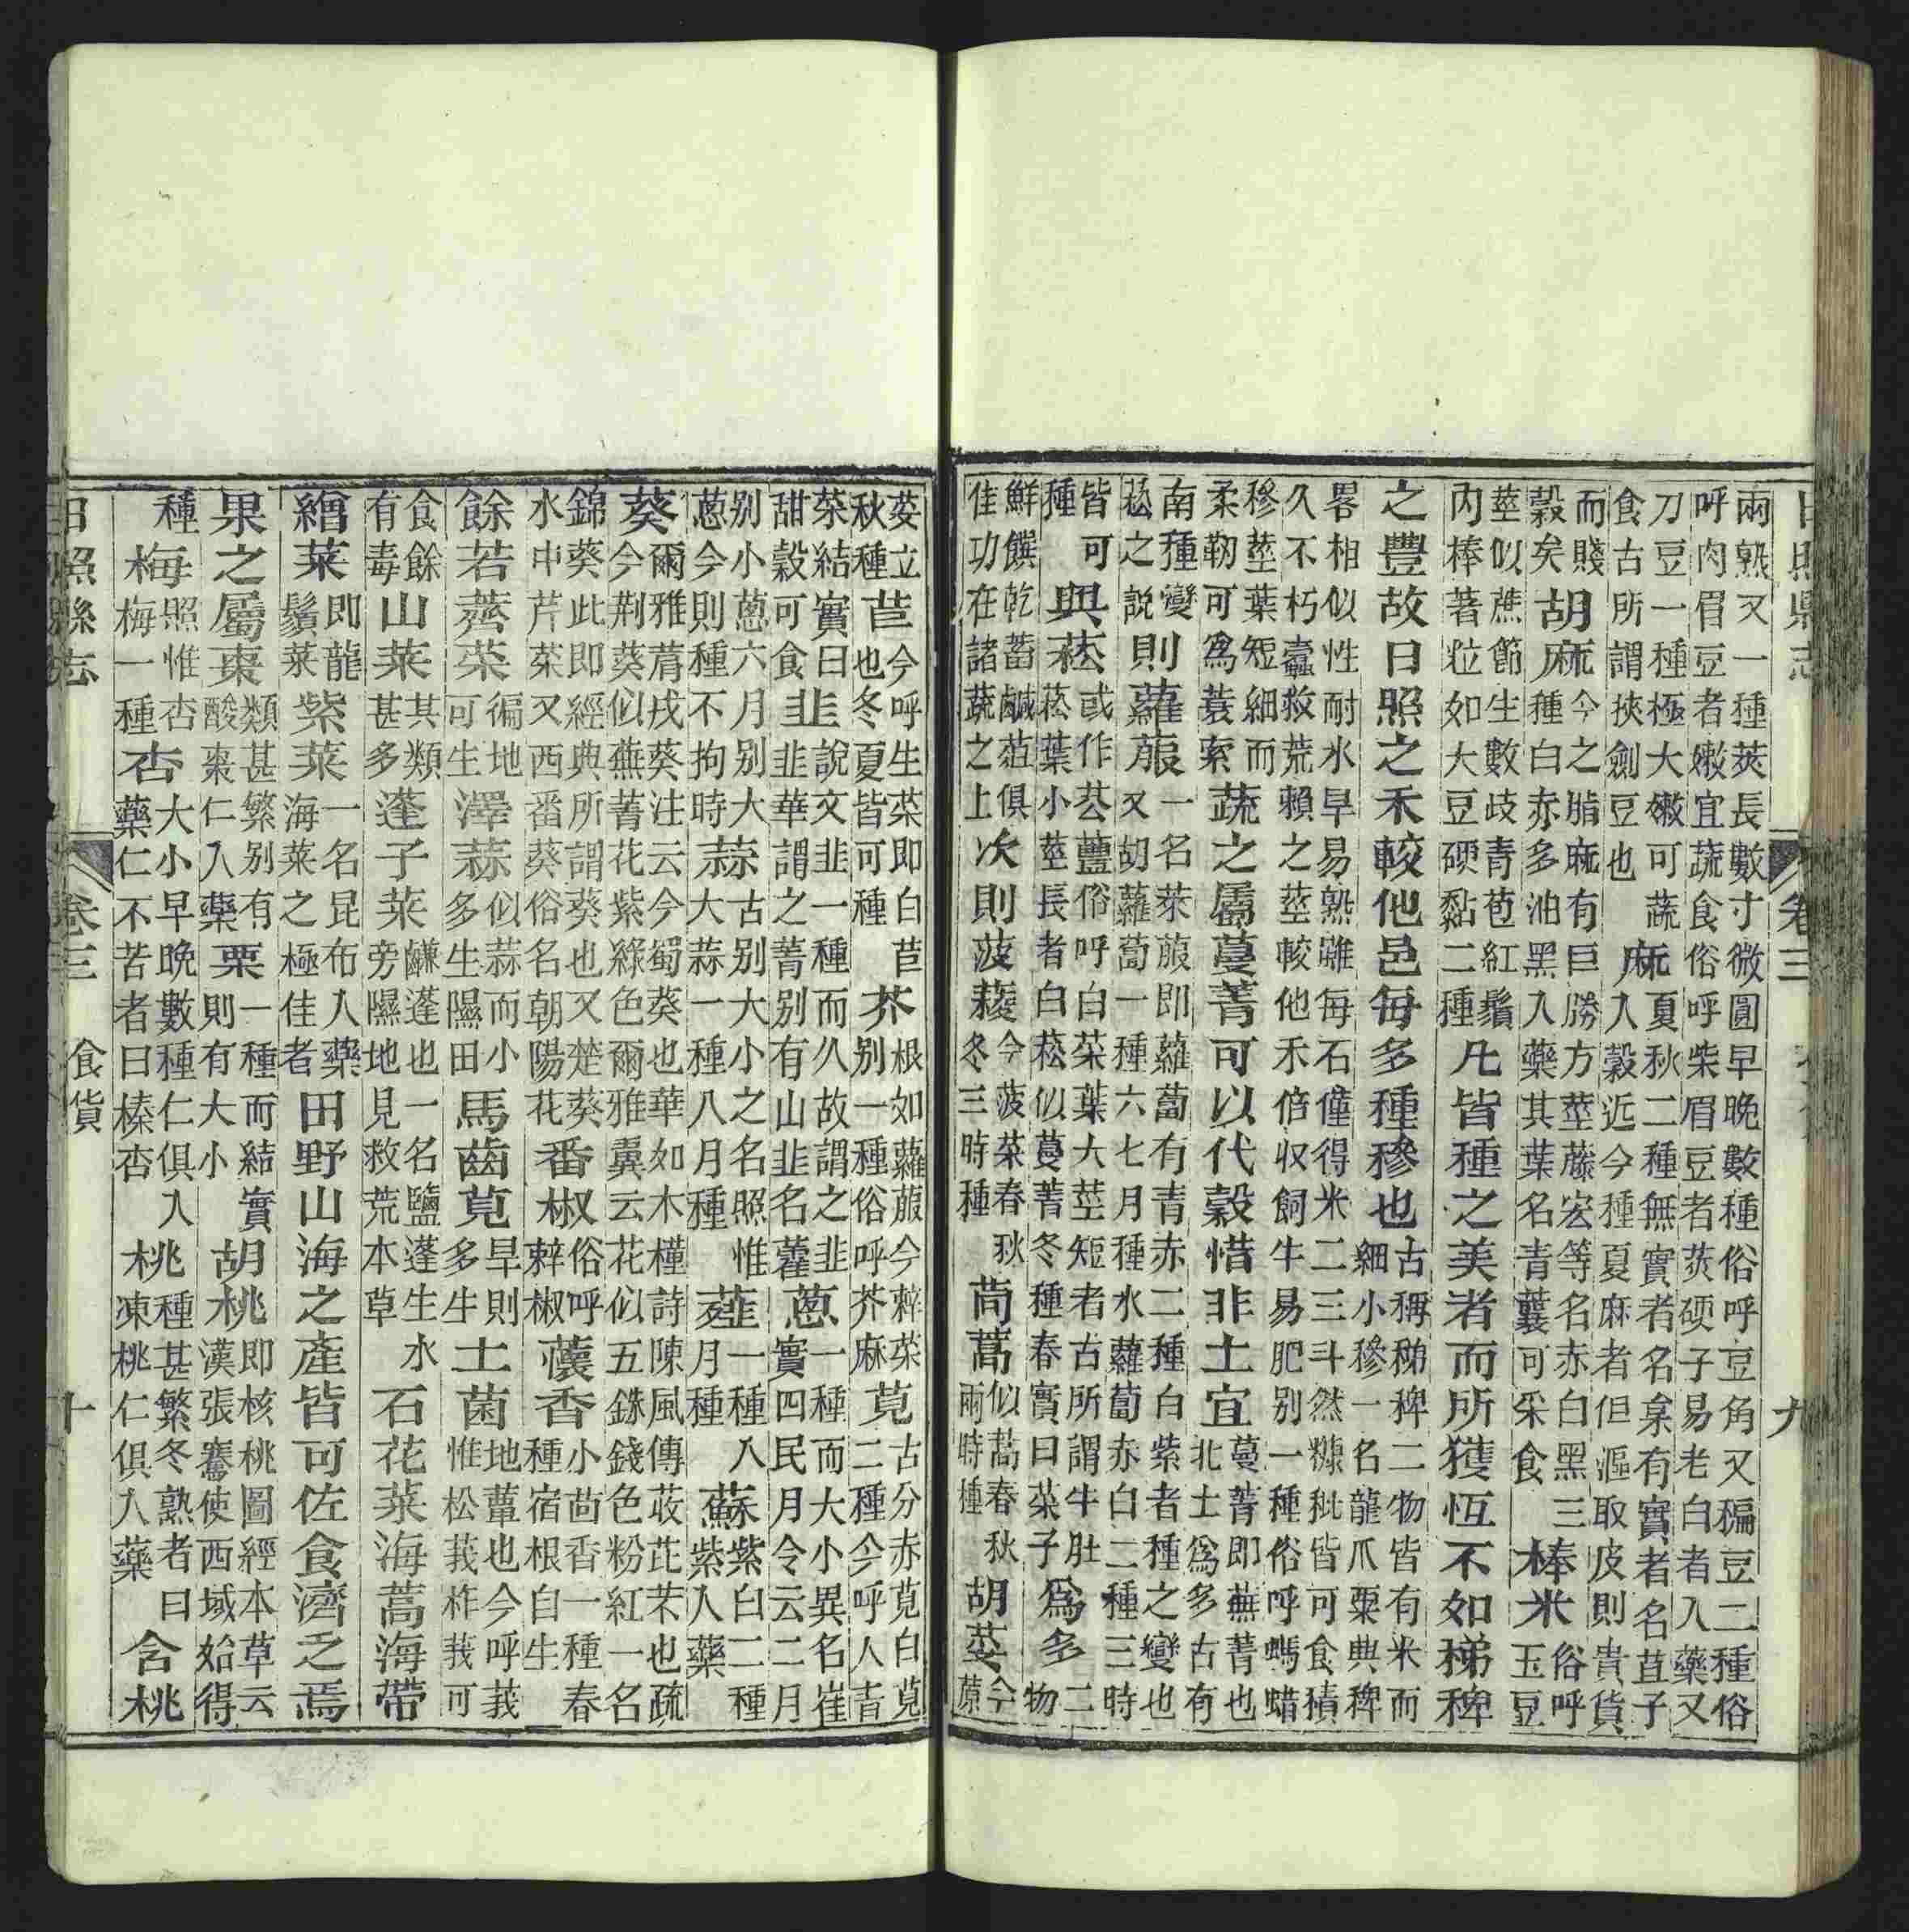 日照縣志 卷三 九
兩熟又一種莢長數寸微圓早晚數種俗呼豆角又稨豆二種俗
呼肉眉豆者嫩宜蔬食俗呼柴眉豆者莢硬子易老白者入藥又
刀豆一種極大嫩可蔬
食古所謂挾劍豆也
麻
夏秋二種無實者名枲有實者名苴子
入穀近今種夏麻者但漚取皮則貴貨
而賤
穀矣
胡麻
今之脂麻有巨勝方莖藤宏等名赤白黑三
種白赤多油黑入藥其葉名青蘘可采食
棒米
俗呼
玉豆
莖似蔗節生數歧青苞紅鬚
內棒著粒如大豆硬黏二種
凡皆種之美者而所獲恆不如稊稗
之豐故日照之禾較他邑每多種穇也
古稱稊稗二物皆有米而
細小穇一名龍爪粟典稗
畧相似性耐水旱易熟雖每石僅得米二三斗然糠秕皆可食積
久不朽蠹救荒賴之莖較他禾倍収飼牛易肥別一種俗呼螞蜡
穇莖葉短細而
柔韌可爲蓑索
蔬之屬蔓菁可以代穀惜非土宜
蔓菁即蕪菁也
北土爲多古有
南種變
菘之說
則蘿菔
一名萊菔即蘿蔔有青赤二種白紫者種之變也
又胡蘿蔔一種六七月種水蘿蔔赤白二種三時
皆可
種
與菘
或作虀俗呼白菜葉大莖短者古所謂牛肚
菘葉小莖長者白菘似蔓菁冬種春實曰菜子
爲多
二
物
鮮饌乾蓄鹹葅俱
佳功在諸蔬之上
次則菠薐
今菠菜春秋
冬三時種
茼蒿
似蒿春秋
兩時種
胡荽
今
蒝
荽立
秋種
苣
今呼生菜即白苣
也冬夏皆可種
芥
根如蘿菔今辢菜
別一種俗呼芥麻
莧
古分赤莧白莧
二種今呼人青
茶結實曰
甜穀可食
韭
說文韭一種而久故謂之韭
韭華謂之菁別有山韭名藿
蔥
一種而大小異名崔
實四民月令云二月
別小蔥六月別大
蔥今則種不拘時
蒜
古別大小之名照惟
大蒜一種八月種
薤
一種八
月種
蘇
紫白二種
紫入藥
葵
爾雅菺戎葵注云今蜀葵也華如木槿詩陳風傳荍芘芣也疏
今荆葵似蕪菁花紫綠色爾雅翼云花似五銖錢色粉紅一名
錦葵此即經典所謂葵也又楚葵
水中芹菜又西番葵俗名朝陽花
番椒
俗呼
辢椒
蘹香
小茴香一種春
種宿根自生
餘若薺菜
徧地
可生
澤蒜
似蒜而小
多生隰田
馬齒莧
旱則
多生
土菌
地蕈也今呼莪
惟松莪柞莪可
食餘
有毒
山菜
其類
甚多
蓬子菜
鹻蓬也一名鹽蓬生水
旁隰地見救荒本草
石花菜海蒿海帶
繒菜
即龍
鬚菜
紫菜
一名昆布入藥
海菜之極佳者
田野山海之產皆可佐食濟乏焉
果之屬棗
類甚繁別有
酸棗仁入藥
栗
一種而結實
則有大小
胡桃
即核桃圖經本草云
漢張騫使西域始得
種
梅
照惟杏
梅一種
杏
大小早晚數種仁俱入
藥仁不苦者曰榛杏
桃
種甚繁冬熟者曰
凍桃仁俱入藥
含桃
日照縣志 卷三 食貨 十